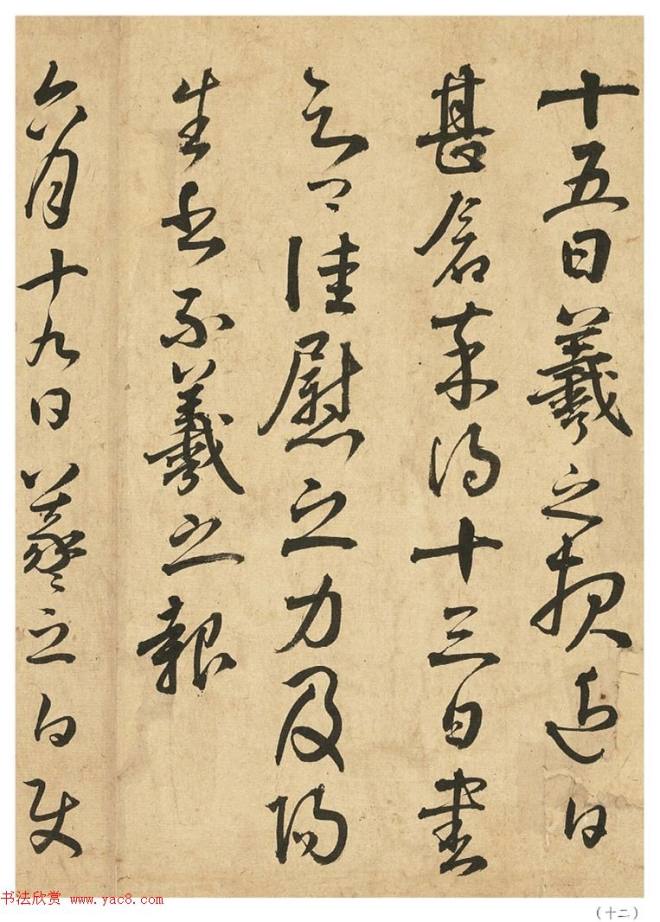 十五日羲之頓近日
甚倉卒得十三日書
云〻佳慰之力及陽
生書不羲之報
六月十九日羲之白使
书法欣赏 www.yac8.com
(十二)